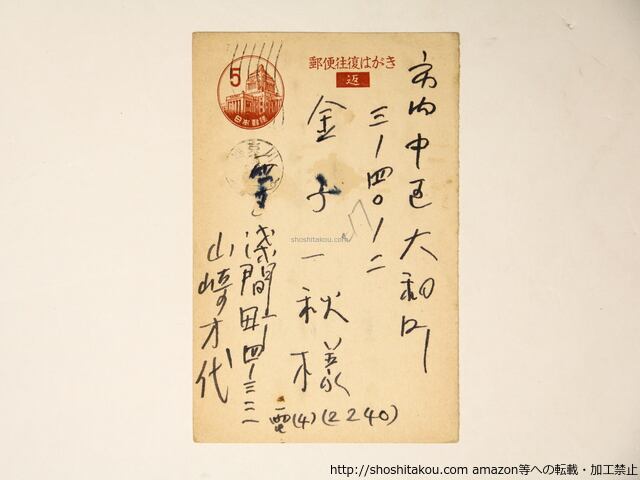 郵便往復はがき
返
5
日本郵便
市内中区大和町
三ノ四〇ノ二
金子一秋様
浅間町四ノ三二一
山崎才代
電(4)(2240)
shoshitakou.com
http://shoshitakou.com amazon等への転載・加工禁止